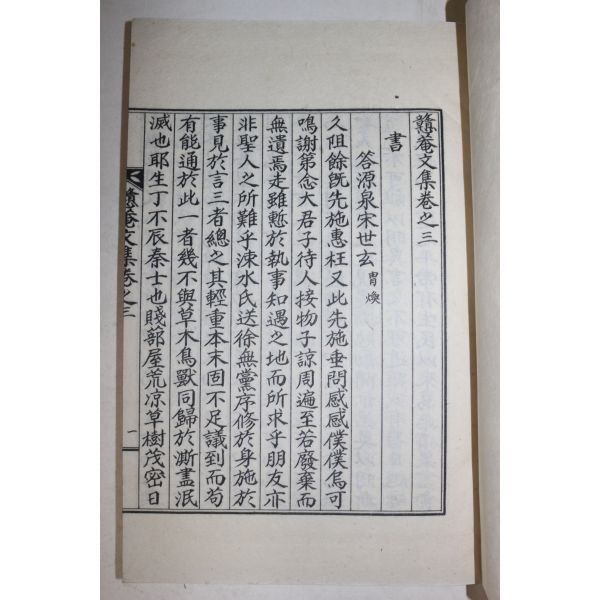 贇菴文集卷之三
書
答源泉宋世玄 胄煥
久阻餘旣先施惠枉又此先施垂問感感僕僕烏可
鳴謝第念大君子待人接物子諒周遍至若廢棄而
無遺焉走雖慙於執事知遇之地而所求乎朋友亦
非聖人之所難乎涑水氏送徐無黨序修於身施於
事見於言三者總之其輕重本末固不足議到而苟
有能通於此一者幾不與草木鳥獸同歸於澌盡泯
滅也耶生丁不辰秦士也賤部屋荒凉草樹茂密日
贇菴文集卷之三
一